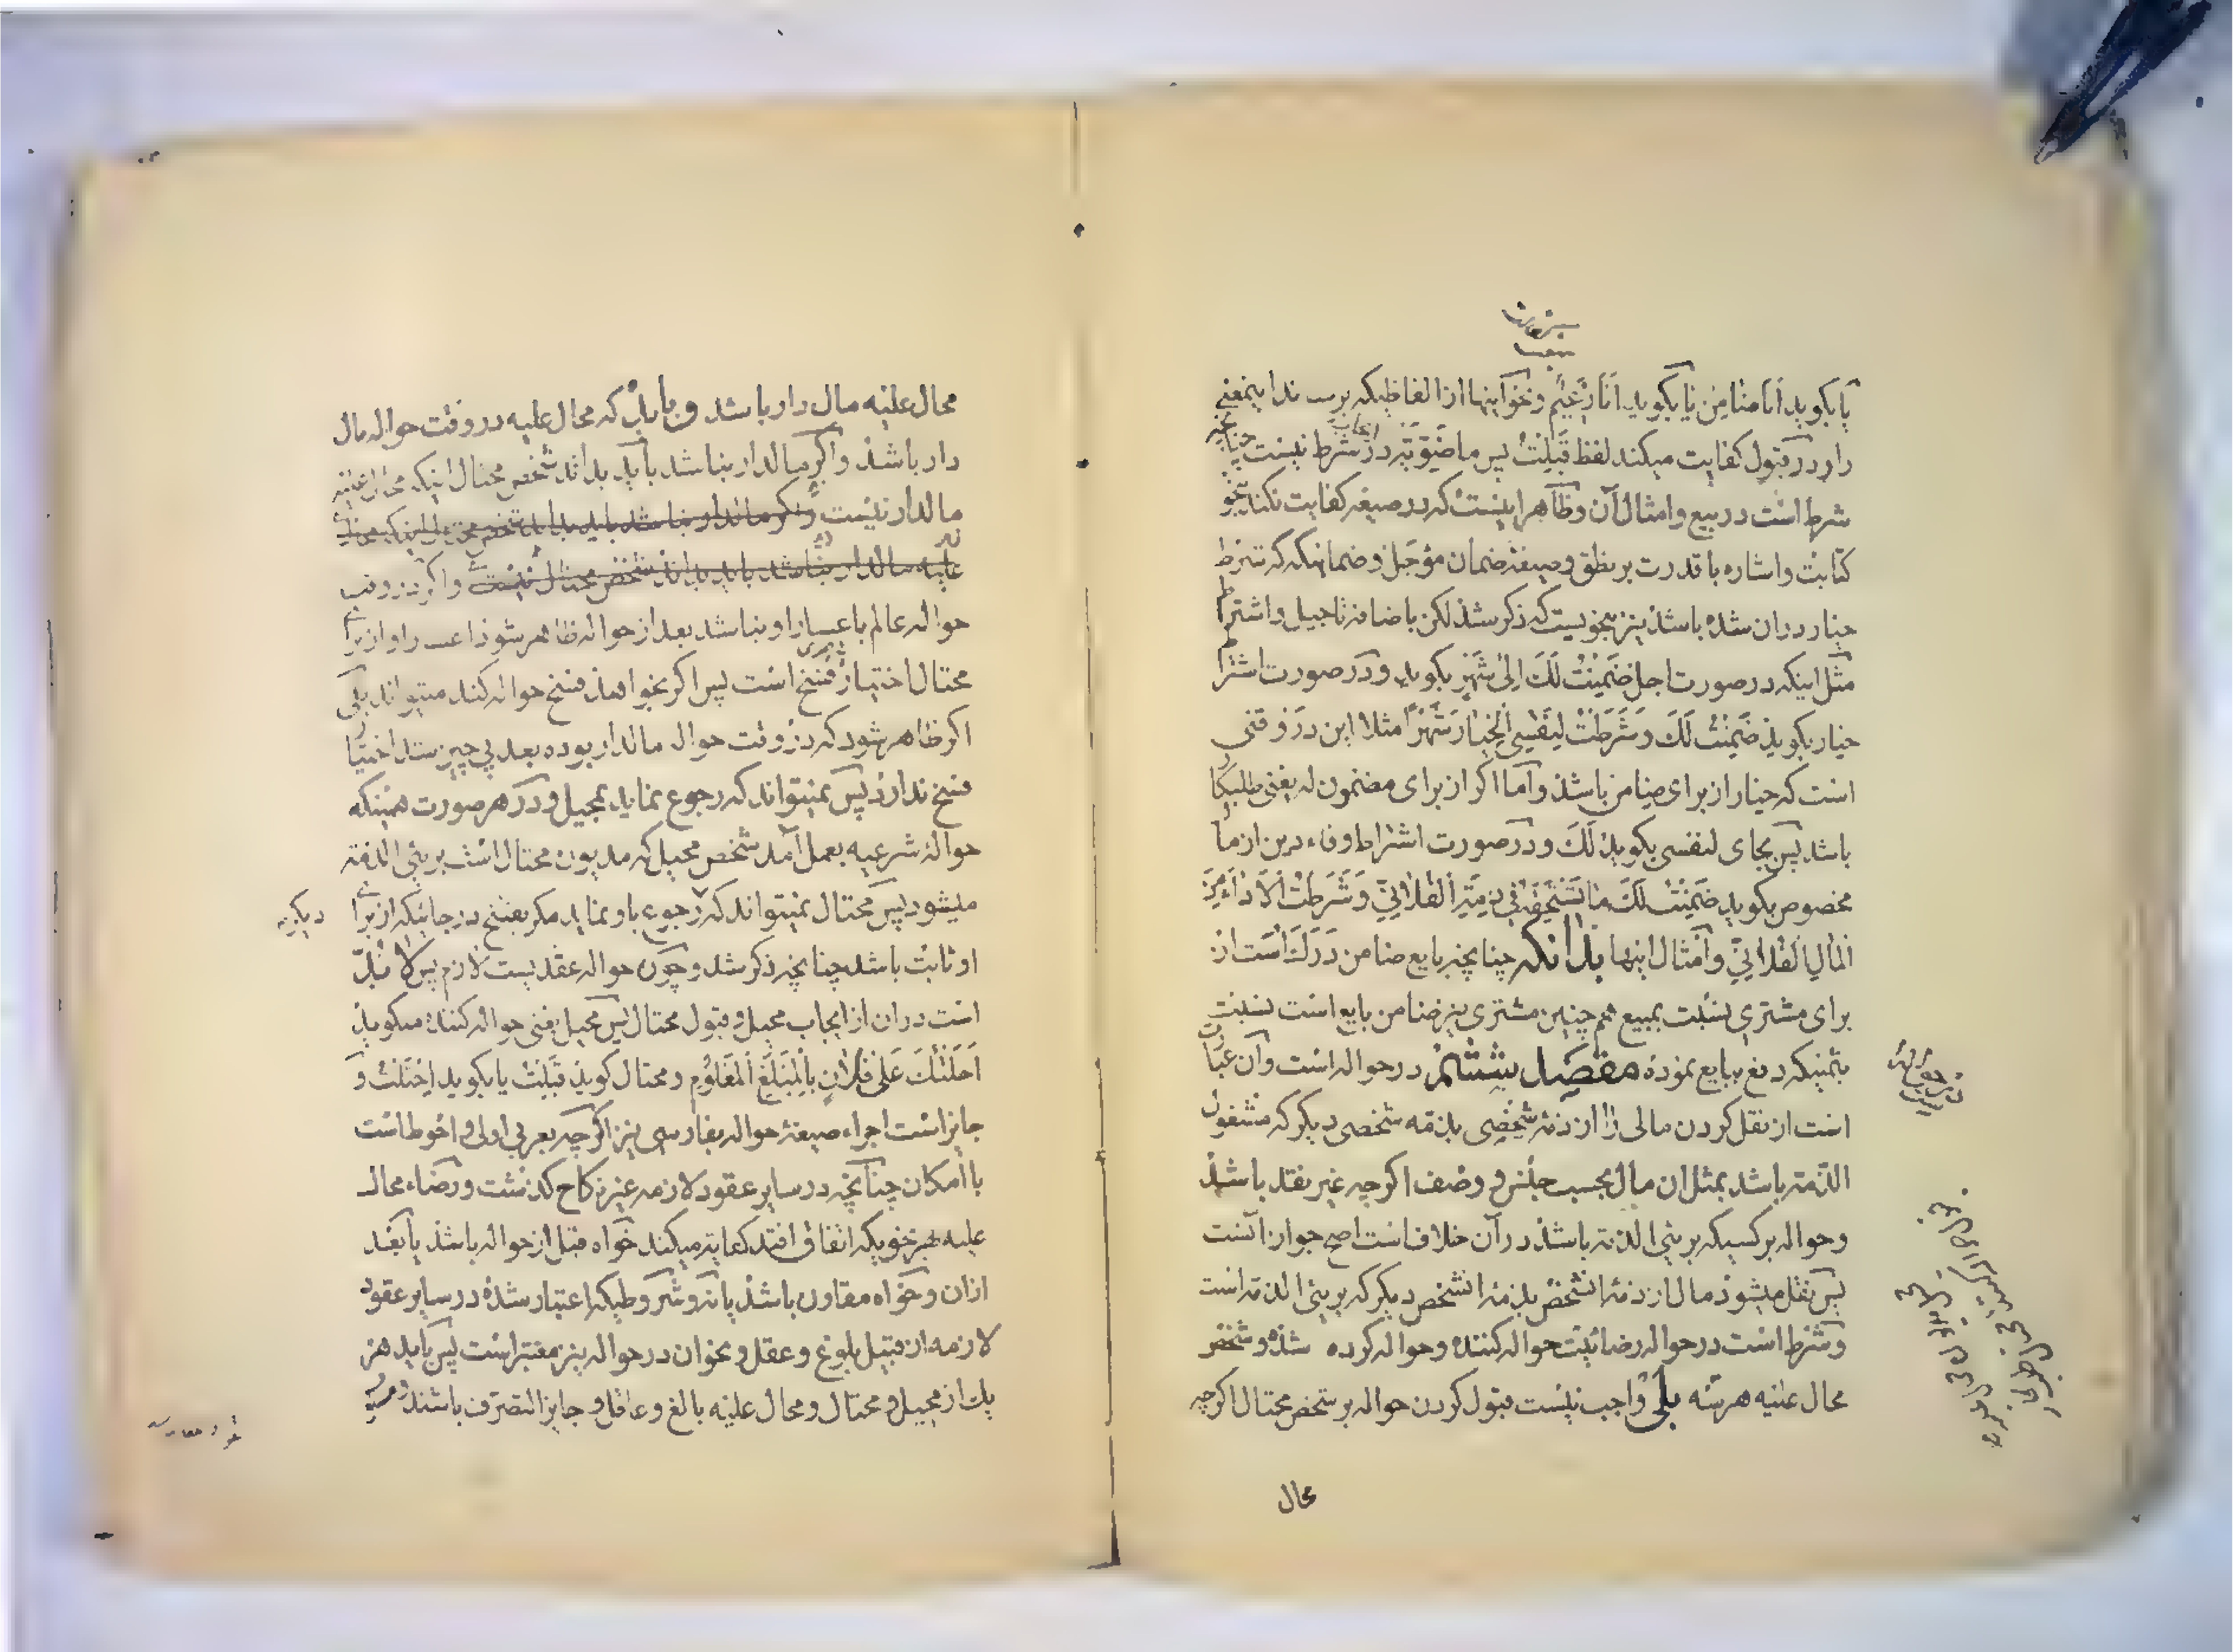 یا بگوید اَنَا ضٰامِن یا بگوید اَنَا زَعیٖم و نحو اینها از الفاظیکه برساند اینمعنی
را و در قبول کفایت میکند لفظ قَبِلْتُ پس ماضویّة در ایجاب شرط نیست چنانچه
شرط است در بیع و امثال آن و ظاهر اینست که در صیغه کفایت نکند نحو
کتابت و اشاره با قدرت بر نطق و صیغهٔ ضمان مؤجل و ضمانیکه که شرط
خیار در ان شده باشد نیز بنحویست که ذکر شد لکن باضافه تاجیل و اشتراط
مثل اینکه در صورت اجل ضَمِنْتُ لَکَ اِلیٰ شَهْرٍ بگوید و در صورت اشتراط
خیار بگوید ضَمِنْتُ لَکَ وَ شَرَطْتُ لِنَفْسِی الْخِیٰارَ شَهْرًا مثلا این در وقتی
است که خیار از برای ضامن باشد و اما اگر از برای مضمون له یعنی طلبکار
باشد پس بجای لنفسی بگوید لَکَ و در صورت اشتراط وفاء دین از مال
مخصوص بگوید ضَمِنْتُ لَکَ مٰا تَسْتَحِقُّهُ فی ذِمَّةِ الْفُلٰانِیِّ وَ شَرَطْتُ الْاَدٰاءَ مِنَ
الْمٰالِ الْفُلٰانِیِّ و امثال اینها بدانکه چنانچه بایع ضامن دَرَک است از
برای مشتری نسبت بمبیع هم چنین مشتری نیز ضامن بایع است نسبت
بثمنیکه دفع ببایع نموده مفصل ششم در حواله است و آن عبارت
است از نقل کردن مالی را از ذمهٔ شخصی بذمه شخصی دیگر که مشغول
الذمّه باشد بمثل ان مال بحسب جنس و وصف اگرچه غیر نقد باشد
و حواله بر کسیکه برئ الذمه باشد در آن خلاف است اصح جواز آنست
پس نقل میشود مال از ذمهٔ انشخص بذمهٔ انشخص دیگر که برئ الذمه است
و شرط است در حواله رضائیت حواله کننده و حواله کرده شده و شخص
محال علیه هر سه بلی واجب نیست قبول کردن حواله بر شخص محتال اگرچه
محال
محال علیه مال دار باشد و باید که محال علیه در وقت حواله مال
دار باشد و اگر مالدار نباشد باید بداند شخص محتال اینکه محال علیه
مالدار نیست و اگر مالدار نباشد باید بداند شخص محتال اینکه محال
علیه مالدار نباشد باید بداند شخص محتال نیست و اگر در وقت
حواله عالم باعسار او نباشد بعد از حواله ظاهر شود اعسار او از برای
محتال اختیار فسخ است پس اگر بخواهد فسخ حواله کند میتواند بلی
اگر ظاهر شود که در وقت حواله مالدار بوده بعد بی چیز شد اختیار
فسخ ندارد پس نمیتواند که رجوع نماید بمحیل و در هر صورت همینکه
حوالهٔ شرعیه بعمل آمد شخص محیل که مدیون محتال است برئ الذمه
میشود پس محتال نمیتواند که رجوع باو نماید مگر بفسخ در جائیکه از برای
دیگر
او ثابت باشد چنانچه ذکر شد و چون حواله عقدیست لازم پس لا بُدّ
است در ان از ایجاب محیل و قبول محتال پس محیل یعنی حواله کننده میگوید
اَحَلْتُکَ عَلیٰ فُلٰانٍ بِالْمَبْلَغِ الْمَعْلُومِ و محتال گوید قَبِلْتُ یا بگوید اِحْتَلْتُ و
جایز است اجراء صیغهٔ حواله بفارسی نیز اگرچه بعربی اولی و احوط است
با امکان چنانچه در سایر عقود لازمه غیر نکاح گذشت و رضاء محال
علیه بهر نحویکه اتفاق افتد کفایت میکند خواه قبل از حواله باشد یا بعد
ازان و خواه مقارن باشد یا نه و شروطیکه اعتبار شده در سایر عقود
لازمه از قبیل بلوغ و عقل و نحو ان در حواله نیز معتبر است پس باید هر
یک از محیل و محتال و محال علیه بالغ و عاقل و جایز التصرف باشند